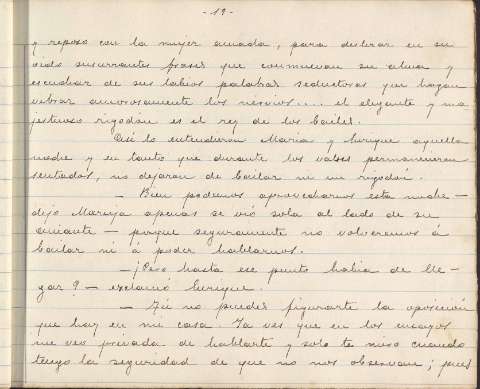 -19-
y reposo con la mujer amada, para deslizar en su
oido susurrantes frases que conmuevan su alma y
escuchar de sus labios palabras seductoras que hagan
vibrar amorosamente los nervios..... el elegante y ma
jestuoso rigodón es el rey de los bailes.
Así lo entendieron María y Enrique aquella
noche y en tanto que durante los valses permanecieron
sentados, no dejaron de bailar ni un rigodón.
— Bien podemos aprovecharnos esta noche —
dijo Maruja apenas se vio sola al lado de su
amante — porque seguramente no volveremos á
bailar ni á poder hablarnos.
— ¡Pero hasta ese punto habia de lle-
gar? — exclamó Enrique.
— Tú no puedes figurarte la oposición
que hay en mi casa. Ya ves que en los ensayos
me veo privada de hablarte y solo te miro cuando
tengo la seguridad de que no nos observan; pues